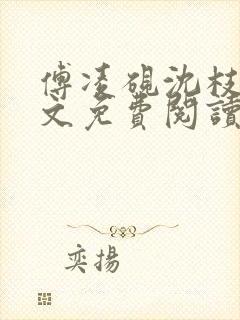 傅凌硯沈枝
文免費閱讀
奕揚